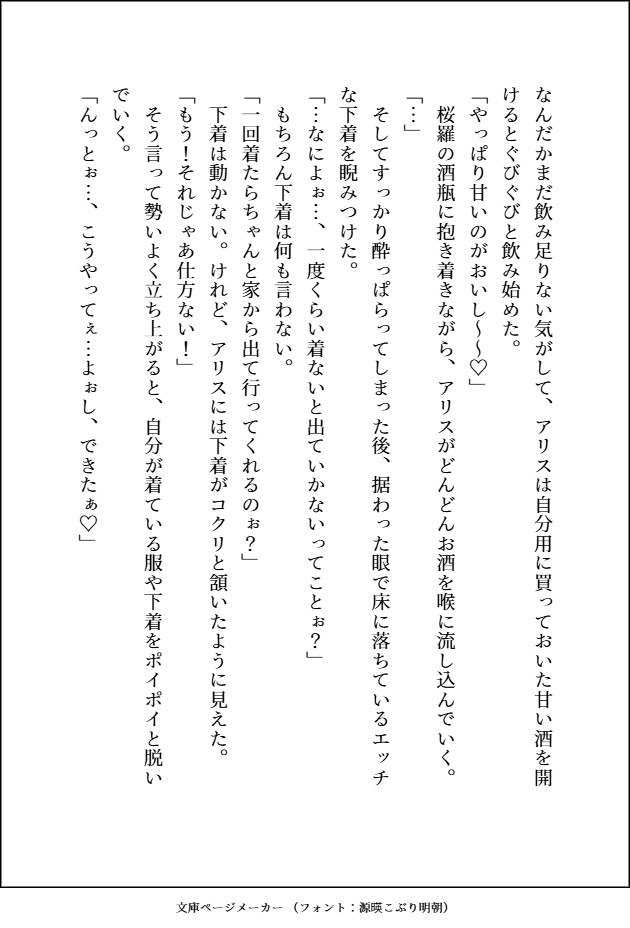 なんだかまだ飲み足りない気がして、アリスは自分用に買っておいた甘い酒を開
けるとぐびぐびと飲み始めた。
「やっぱり甘いのがおいし～～♡」
　桜羅の酒瓶に抱き着きながら、アリスがどんどんお酒を喉に流し込んでいく。
「…」
　そしてすっかり酔っぱらってしまった後、据わった眼で床に落ちているエッチ
な下着を睨みつけた。
「…なによぉ…、一度くらい着ないと出ていかないってことぉ？」
　もちろん下着は何も言わない。
「一回着たらちゃんと家から出て行ってくれるのぉ？」
　下着は動かない。けれど、アリスには下着がコクリと頷いたように見えた。
「もう！それじゃあ仕方ない！」
　そう言って勢いよく立ち上がると、自分が着ている服や下着をポイポイと脱い
でいく。
「んっとぉ…、こうやってぇ…よぉし、できたぁ♡」
文庫ページメーカー（フォント：源暎こぶり明朝）